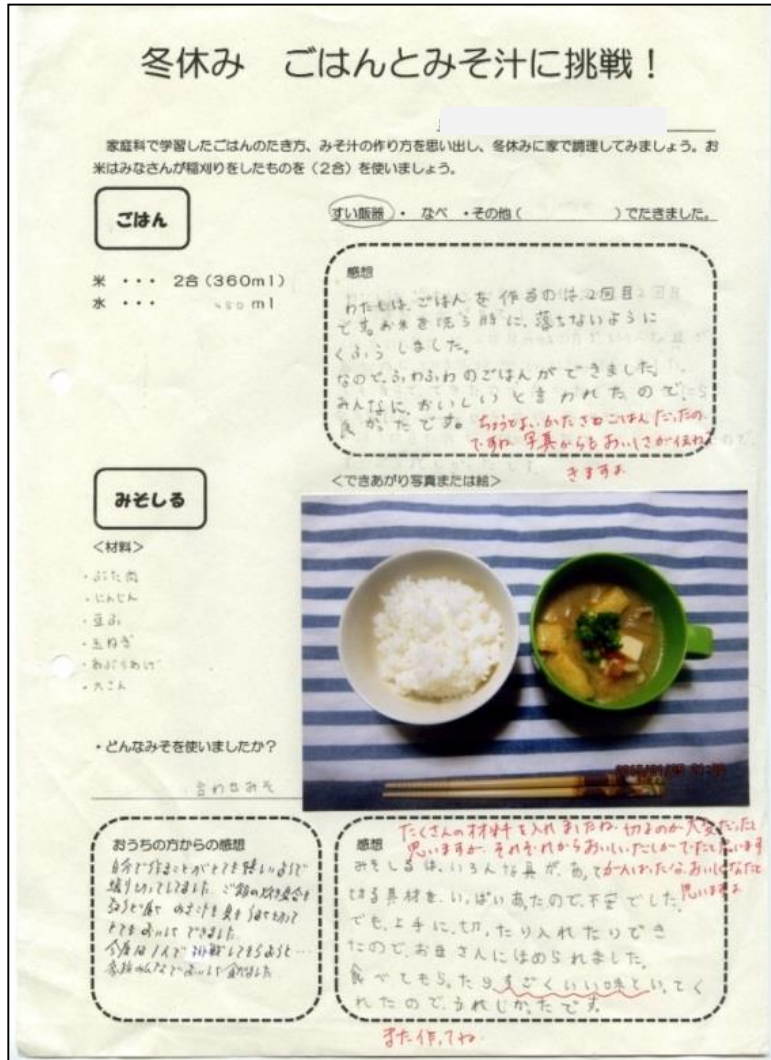 冬休み　ごはんとみそ汁に挑戦！
家庭科で学習したごはんのたき方、みそ汁の作り方を思い出し、冬休みに家で調理してみましょう。お
米はみなさんが稲刈りをしたものを（2合）を使いましょう。
ごはん
すい飯器・　なべ　・その他（　　　　　　）でたきました。
米　・・・　2合（360ml）
水　・・・　450 ml
感想
わたしは、ごはんを作るのは2回目
です。お米を洗う時に、落ちないように
くふうしました。
なので、ふわふわのごはんができました。
みんなに、おいしいと言われたので、
良かったです。
ちょうどよいかたさのごはんだったの
ですね。写真からもおいしさが伝わって
きますよ
みそしる
＜材料＞
・ぶた肉
・にんじん
・豆ふ
・玉ねぎ
・あぶらあげ
・大こん
＜できあがり写真または絵＞
・どんなみそを使いましたか？
合わせみそ
おうちの方からの感想
自分で作ることがとても
とてもおいしくできました。
今度は1人で挑戦してもらおうと…
家族みんなでおいしく食べました
感想
たくさんの材料を入れましたね。切るのが大変だったと
思いますが、それぞれからおいしいだしがでたと思います
がんばったな、おいしくなたと
思いますよ
みそしるは、いろんな具があって
切る具材を、いっぱいあったので、不安でした。
でも、上手に、切ったり入れたりでき
たので、お母さんにほめられました。
食べてもらったりすごくいい味といってく
れたので、うれしかったです。
また作ってね。